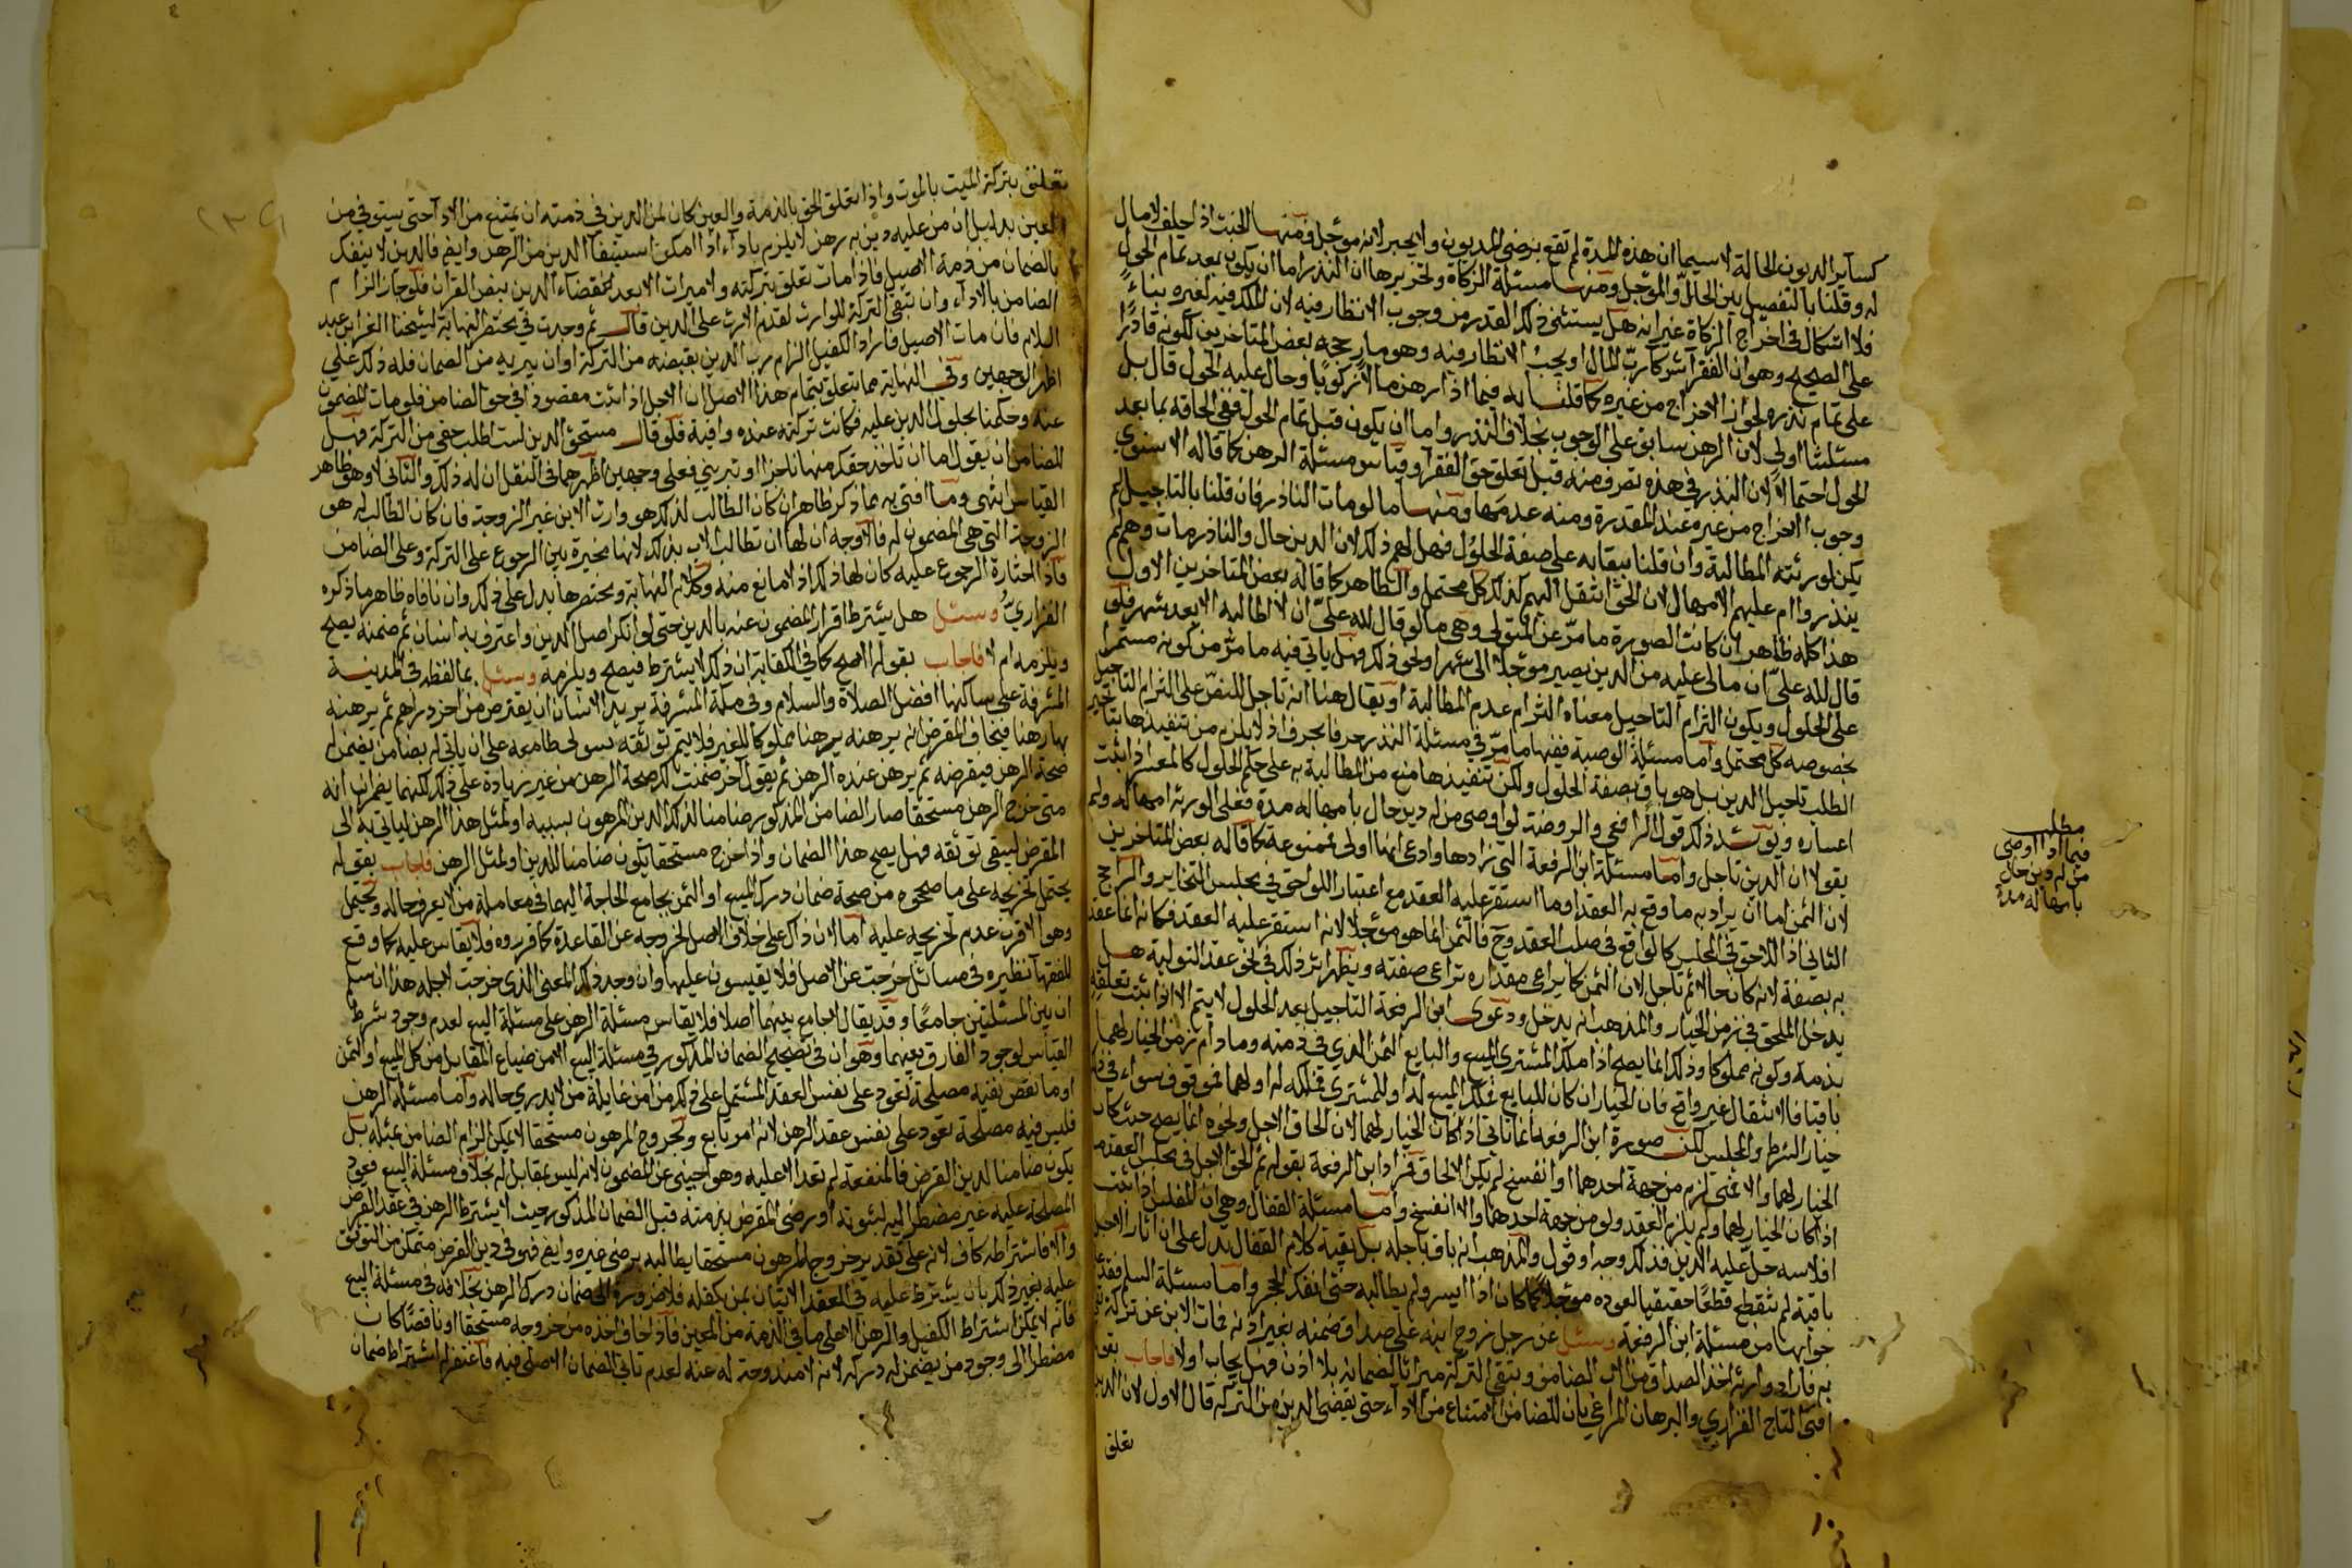 كسآير الديون الحالة لاسيما ان هذه المدة لم تقع برضى المديون ولا يجبر لانه مؤجل ومنها الحنث اذا حلف لا مال
له وقلنا بالتفصيل بين الحال والمؤجل ومنها مسئلة الزكاة وتحريرها ان النذر اما ان يكون بعد تمام الحول
فلا اشكال في اخراج الزكاة غير انه هل يستثنى ذلك القدر من وجوب الانظار فيه لان الملك فيه لغيره بناءً
على الصحيح وهو ان الفقرآ شركآ رب المال او يجب الانظار فيه وهو ما رجحه بعض المتاخرين لكونه قادرًا
على تمام نذره لجواز الاخراج من غيره كما قلنا به فيما اذا رهن مالًا زكويًا وحال عليه الحول قال بل
مسئلتنا اولى لان الرهن سابق على الوجوب بخلاف النذر واما ان يكون قبل تمام الحول ففي الحاقه بما بعد
الحول احتمالًا لان النذر في هذه تصرف منه قبل تعلق حق الفقرآ وقياس مسئلة الرهن كما قاله الاسنوي
وجوب اخراج من غيره عند المقدرة ومنه عدمها ومنها ما لو مات الناذر فان قلنا بالتاجيل لم
يكن لورثته المطالبة وان قلنا ببقايه على صفة الحلول فهل لهم ذلك لان الدين حال والناذر مات وهم لم
ينذروا ام عليهم الامهال لان الحق انتقل اليهم كذلك كل محتمل والظاهر كما قاله بعض المتاخرين الاول
هذا كله ظاهر ان كانت الصورة ما مر عن المتولي وهي ما لو قال لله علي ان لا اطالبه الا بعد شهر فلو
قال لله علي ان مالي عليه من الدين يصير مؤجلًا الى شهر او نحو ذلك فهل ياتي فيه ما مر من كونه مستمرًا
على الحلول ويكون التزام التاجيل معناه التزام عدم المطالبة او يقال هنا انه تاجل للنص على التزام التاجيل
بخصوصه كل محتمل واما مسئلة الوصية ففيها ما مر في مسئلة النذر حرفا بحرف اذ لا يلزم من تنفيذها بتاخير
الطلب تاجيل الدين بل هو باق بصفة الحلول ولكن تنفيذها منع من المطالبة به على حكم الحلول كالمعسر اذا ثبت
اعساره ويؤيد ذلك قول الرافعي والروضة لو اوصى من له دين حال بامهاله مدة فعلى الورثة امهاله ولم
يقولا ان الدين تاجل واما مسئلة ابن الرفعة التي زادها وادعى انها اولى فممنوعة كما قاله بعض المتاخرين
لان الثمن اما ان يراد به ما وقع به العقد او ما استقر عليه العقد مع اعتبار اللواحق في مجلس التخاير والراجح
الثاني اذ اللاحق في المجلس كالواقع في صلب العقد وح فالثمن انما هو مؤجلًا لانه استقر عليه العقد فكانه انما عقد
به بصفة لانه كان حالا ثم تاجل لان الثمن كما يراعى مقداره تراعى صفته ويظهر اثر ذلك في نحو عقد التولية هل
يدخل الملحق في زمن الخيار والمذهب انه يدخل ودعوى ابن الرفعة التاجيل بعد الحلول لا يتم الا اذا ثبت تعلقه
بذمة وكونه مملوكا وذلك انما يصح اذا ملك المشتري المبيع والبايع الثمن الذي في ذمته وما دام زمن الخيار لهما
باقيا فالانتقال غير واقع فان الخيار ان كان للبايع فملك المبيع له او للمشتري فملكه له او لهما فموقوف سواء في ذلك
خيار الشرط والمجلس لكن صورة ابن الرفعة انما تاتي اذا كان الخيار لهما لان الحاق الاجل ونحوه انما يصح حيث كان
الخيار لهما والا فمتى لزم من جهة احدهما او انفسخ لم يكن الالحاق فمراد ابن الرفعة بقوله ثم الحق الاجل في مجلس العقد ما
اذا كان الخيار لهما ولم يلزم العقد ولو من جهة احدهما والا انفسخ واما مسئلة القفال وهي ان المفلس اذا ثبت
افلاسه حل عليه الدين فذلك وجه او قول والمذهب انه باق باجله بل بقية كلام القفال يدل على ان اثار الاجل
باقية لم تنقطع قطعًا حقيقيا لعوده مؤجلًا كما كان اذا ايسر ولم يطالبه حتى انفك الحجر واما مسئلة السلم فقد علم
جوابها من مسئلة ابن الرفعة وسئل عن رجل زوج ابنه على صداق ضمنه بغير اذنه فمات الابن عن تركة تفي
به فاراد وارثه اخذ الصداق من الاب الضامن وتبقى التركة ميراثا لضمانه بلا اذن فهل يجاب او لا فاجاب بقوله
افتى التاج الفزاري والبرهان المراغي بان للضامن الامتناع من الادآء حتى يقضى الدين من التركة قال الاول لان الدين
تعلق
مطلب
فيما اذا اوصى
من له دين حال
بامهاله مدة
تعلق بتركة الميت بالموت واذا تعلق الحق بالذمة والعين كان لمن الدين في ذمته ان يمتنع من الادآ حتى يستوفي من
العين بدليل ان من عليه دين به رهن لا يلزم باداء اذا امكن استيفآ الدين من الرهن وايضا فالدين لا ينفك
بالضمان من ذمة الاصيل فاذا مات تعلق بتركته ولا ميراث الا بعد قضاء الدين بنص القران فلو جاز الزام
الضامن بالاداء وان تبقى التركة للوارث لقدم الارث على الدين قال ثم وجدت في مختصر النهاية لشيخنا العز ابن عبد
السلام فان مات الاصيل فاراد الكفيل الزام رب الدين بقبضه من التركة او ان يبريه من الضمان فله ذلك على
اظهر الوجهين وفي النهاية مما يتعلق بتمام هذا الاصل ان الاجل اذا ثبت مقصودا في حق الضامن فلو مات المضمون
عنه وحكمنا بحلول الدين عليه فكانت تركته عنده وافية فلو قال مستحق الدين لست اطلب حقي من التركة فهل
للضامن ان يقول اما ان تاخذ حقك منها ناجزا او تبريني فعلى وجهين اظهرهما في النقل ان له ذلك والثاني لا وهو ظاهر
القياس انتهى وما افتى به بما ذكر ظاهر ان كان الطالب لذلك هو وارث الابن غير الزوجة فان كان الطالب له هو
الزوجة التي هي المضمون له فالاوجه ان لها ان تطالب الاب بذلك لانها مخيرة بين الرجوع على التركة وعلى الضامن
فاذا اختارة الرجوع عليه كان لها ذلك اذ لا مانع منه وكلام النهاية ومختصرها يدل على ذلك وان نافاه ظاهر ما ذكره
الفزاري وسئل هل يشترط اقرار المضمون عنه بالدين حتى لو انكر اصل الدين واعترف به انسان ثم ضمنه يصح
ويلزمه ام لا فاجاب بقوله الاصح كما في الكفاية ان ذلك لا يشترط فيصح ويلزمه وسئل بما لفظه في المدينة
المشرفة على ساكنها افضل الصلاة والسلام وفي مكة المشرفة يريد الانسان ان يقترض من اخر دراهم ثم يرهنه
بها رهنا فيخاف المقرض انه يرهنه يرهنا مملوكا للغير فلا يتم توثقه به على ان ياتي له بضامن يضمن له
صحة الرهن فيقرضه ثم يرهن عنده الرهن ثم يقول اخر ضمنت لك صحة الرهن من غير زيادة على ذلك لكنهما يضمران انه
متى خرج الرهن مستحقا صار الضامن المذكور ضامنا لذلك الدين المرهون بسببه او لمثل هذا الرهن لياتي به الى
المقرض ليبقى توثقه فهل يصح هذا الضمان واذا خرج مستحقا يكون ضامنا للدين او لمثل الرهن فاجاب بقوله
يحتمل تخريجه على ما صححوه من صحة ضمان درك المبيع او الثمن بجامع الحاجة اليهما في معاملة من لا يعرف حاله ويحتمل
وهو الاقرب عدم تخريجه عليه اما لان ذاك على خلاف الاصل لخروجه عن القاعدة كما قرروه فلا يقاس عليه كما وقع
للفقهآ نظيره في مسائل خرجت عن الاصل فلا يقيسون عليها وان وجد ذلك المعنى الذي خرجت لاجله هذا ان سلم
ان بين المسئلتين جامعًا وقد يقال لا جامع بينهما اصلا فلا يقاس مسئلة الرهن على مسئلة البيع لعدم وجود شرط
القياس لوجود الفارق بينهما وهو ان في تصحيح الضمان المذكور في مسئلة البيع الامن من ضياع المقابل من كل المبيع او الثمن
او ما نقص ففيه مصلحة تعود على نفس العقد المشتمل على ذلك من امن غايلة من لا يدري حاله واما مسئلة الرهن
فليس فيه مصلحة تعود على نفس عقد الرهن لانه امر تابع وبخروج المرهون مستحقا لا يمكن الزام الضامن بمثله بل
يكون ضامنا لدين القرض فالمنفعة لم تعد الا عليه وهو اجنبي عن المضمون لانه ليس بمقابل له بخلاف مسئلة البيع فعود
المصلحة عليه غير مضطر اليه لثبوته او رضى المقرض بذمته قبل الضمان المذكور حيث لا يشترط الرهن في عقد القرض
والا فاشتراطه كاف لانه على تقدير خروج المرهون مستحقا يطالبه برضى غيره وايضا فهو في دين القرض متمكن من التوثق
عليه بغير ذلك بان يشترط عليه في العقد الاتيان بمن يكفله فلا ضرورة الى ضمان درك الرهن بخلافه في مسئلة البيع
فانه لا يمكن اشتراط الكفيل والرهن الا على ما في الذمة من المعين فاذا خاف اخذه من خروجه مستحقا او ناقصًا كان
مضطرا الى وجود من يضمن له دركه لانه لا مندوحة له عنه لعدم تاتي الضمان الاصلي فيه فاغتفر له اشتراط ضمان